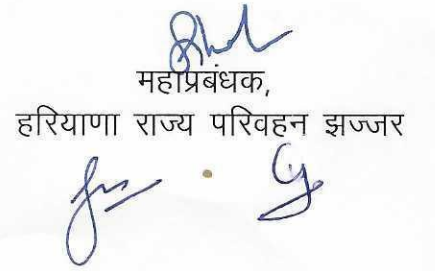 महाप्रबंधक,
हरियाणा राज्य परिवहन झज्जर